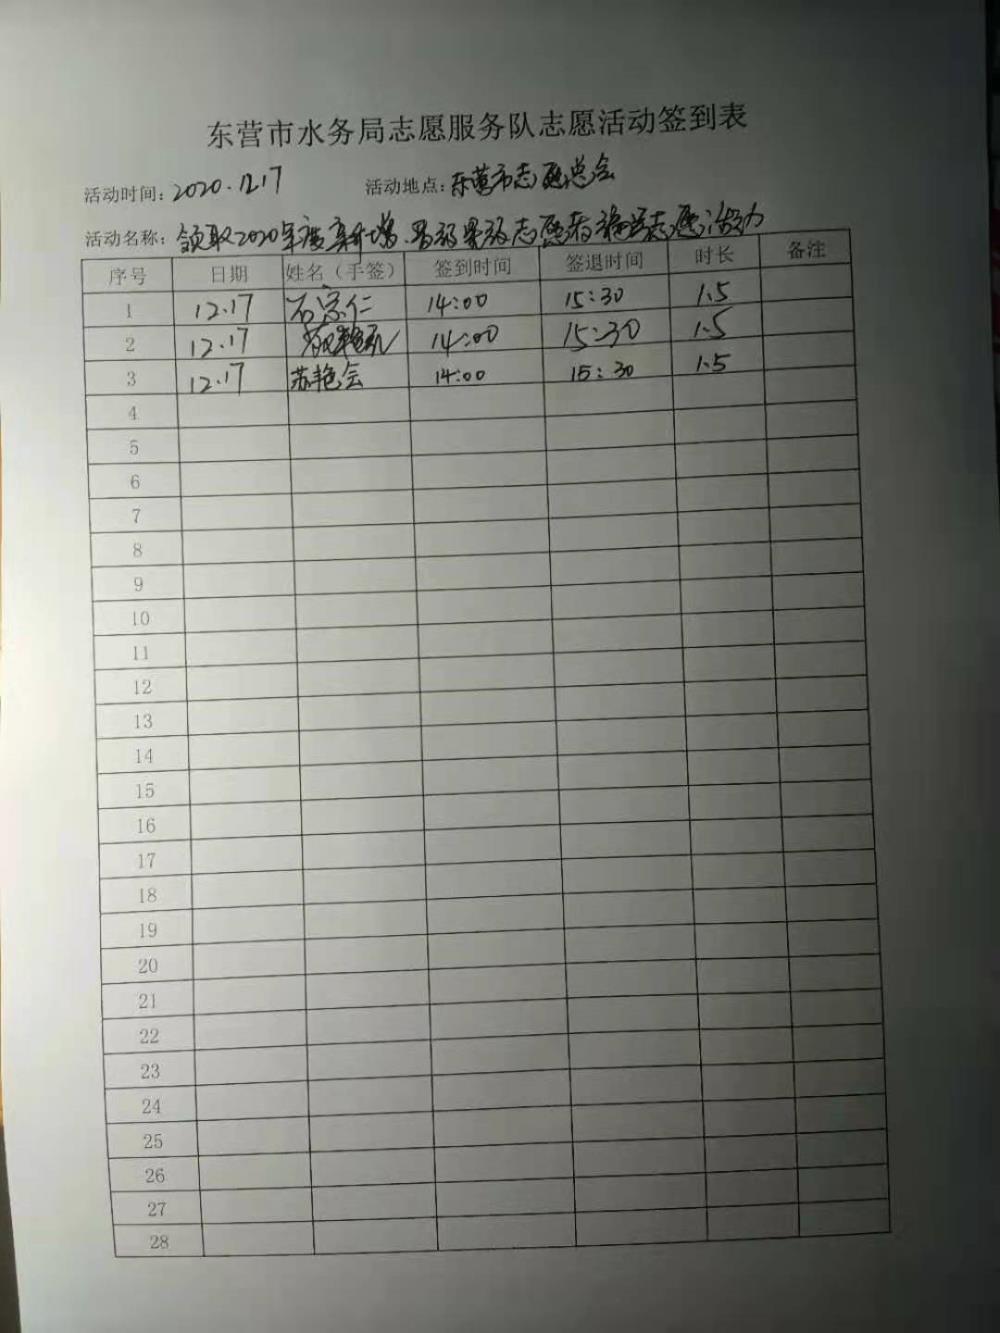 东营市水务局志愿服务队志愿活动签到表
活动时间：2020.12.17 活动地点：东营市志愿总会
活动名称：领取2020年度新增 志愿者 志愿活动
序号 日期 姓名（手签） 签到时间 签退时间 时长 备注
1 12.17 石宗仁 14:00 15:30 1.5
2 12.17 14:00 15:30 1.5
3 12.17 苏艳会 14:00 15:30 1.5
4
5
6
7
8
9
10
11
12
13
14
15
16
17
18
19
20
21
22
23
24
25
26
27
28